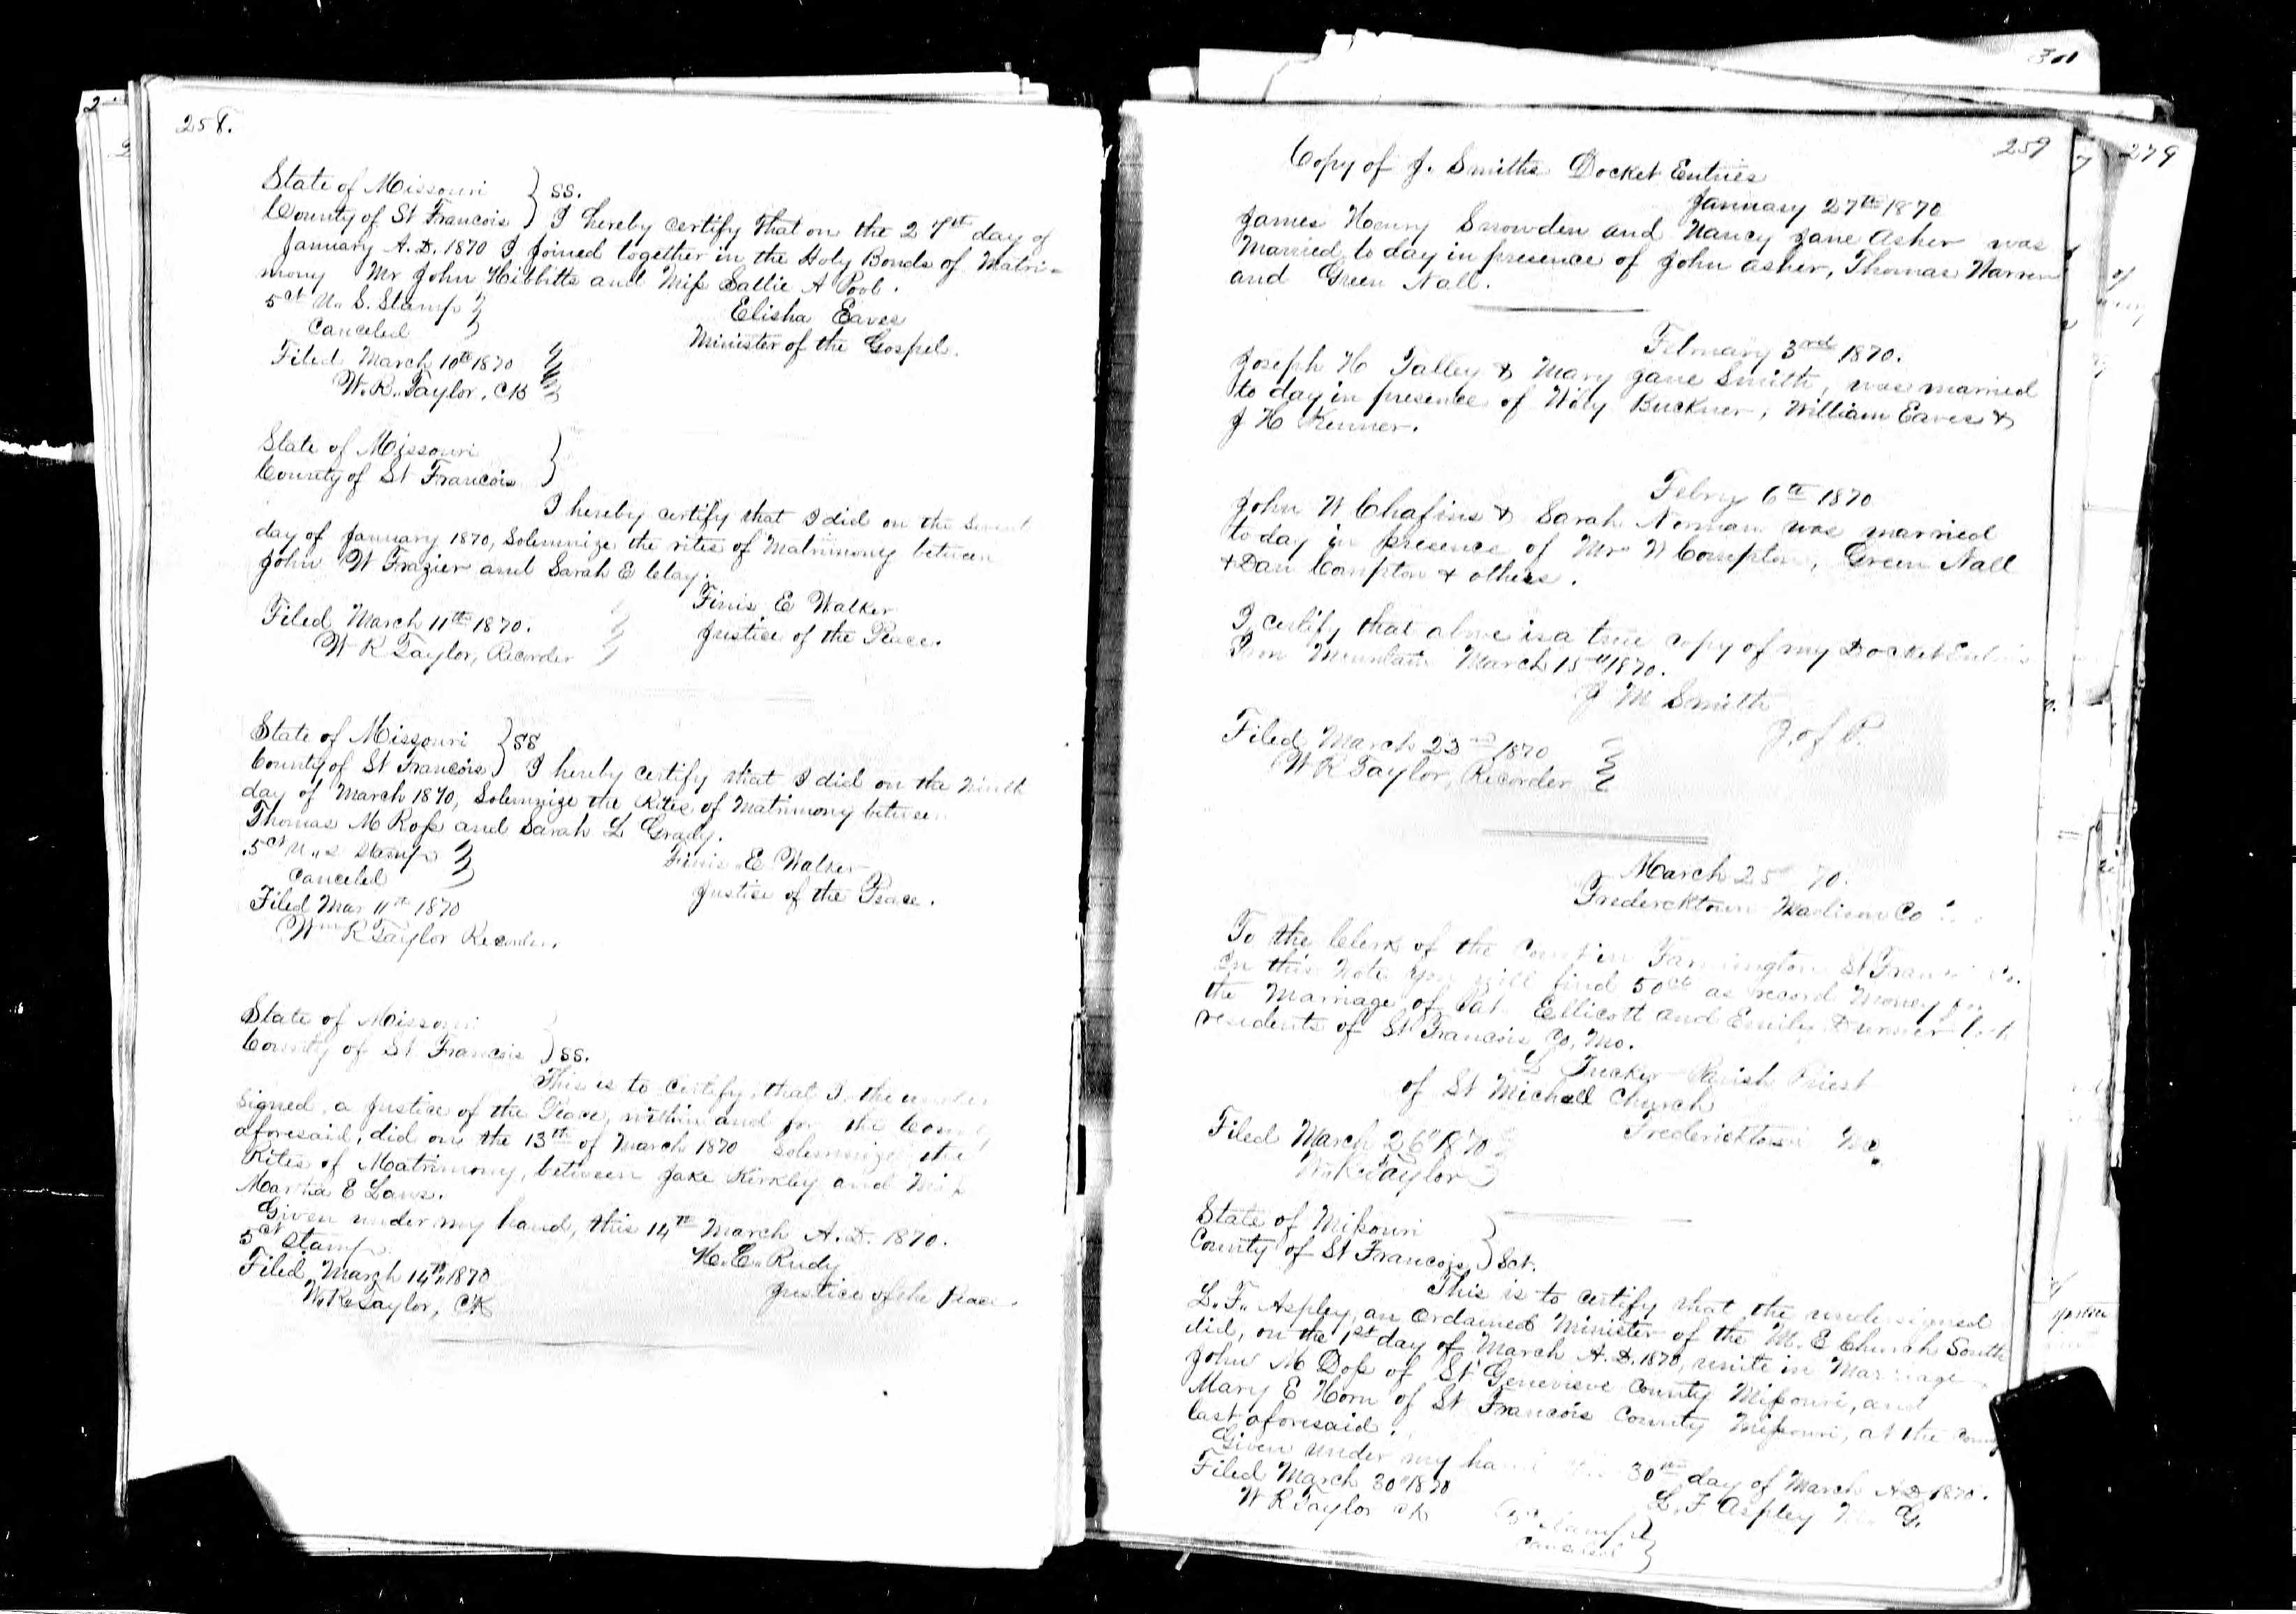 258.
State of Missouri } ss.
County of St Francois } I hereby certify that on the 27st day of
January A.D. 1870 I joined together in the Holy Bonds of Matri-
mony Mr John Hibbitts and Miss Sallie A Pool.
5ct U.S. Stamp }
Canceled }
Elisha Eaves
Minister of the Gospel.
Filed March 10th 1870
W.R. Taylor, Clk
State of Missouri }
County of St Francois }
I hereby certify that I did on the
day of January 1870, Solemnize the rites of Matrimony between
John W Frazier and Sarah E Clay.
Finis E Walker
Justice of the Peace.
Filed March 11th 1870.
W R Taylor, Recorder
State of Missouri } ss
County of St Francois } I hereby certify that I did on the Ninth
day of March 1870, Solemnize the Rites of Matrimony between
Thomas M Ross and Sarah L Grady.
5ct U.S Stamp }
Canceled }
Finis E Walker
Justice of the Peace.
Filed Mar 11th 1870
Wm R Taylor Recorder.
State of Missouri }
County of St Francois } ss.
This is to certify, that I, the under
signed, a Justice of the Peace, within and for the County
aforesaid, did on the 13th of March 1870 Solemnize the
Rites of Matrimony, between Jake Kirkley and Miss
Martha E Laws.
Given under my hand, this 14th March A.D. 1870.
5ct Stamp
Rudy
Justice of the Peace.
Filed March 14th 1870
W.R. Taylor, Clk
301
259
279
Copy of J. Smiths Docket Entries
January 27th 1870
James Henry Snowden and Nancy Jane Asher was
Married to day in presence of John Asher, Thomas Warren
and Green Nall.
February 3rd 1870.
Joseph H Talley & Mary Jane Smith, was married
to day in presence of Wily Buckner, William Eaves &
J H Kenner.
Febry 6th 1870
John W Chafins & Sarah Norman was married
to day in presence of Mr W Compton, Green Nall
& Dan Compton & others.
I, certify that above is a true copy of my Docket Entries
Iron Mountain March 15th 1870.
J M Smith
J. of P.
Filed March 23rd 1870
W R Taylor, Recorder
March 25 70.
Fredercktown Madison Co
To the Clerk of the Court in Farmington St Francis Co.
In this Note you will find 50cts as record Money for
the Marriage of Pat Ellicott and Emily Dunner both
residents of St Francois Co, Mo.
L Tucker Parish Priest
of St Michall Church
Fredericktown Mo.
Filed March 26th 1870
W.R. Taylor
State of Missouri }
County of St Francois } Sct.
This is to certify that the undersigned
L. F. Aspley, an Ordained Minister of the M. E Church South
did, on the 1st day of March A.D. 1870, unite in Marriage
John M Doss of St Genevieve County Missouri, and
Mary E Horn of St Francois County Missouri, at the County
last aforesaid.
Given under my hand this 30th day of March A.D 1870.
Filed March 30th 1870
L. F Aspley M. G.
W R Taylor Clk
5ct Stamp }
Canceled }